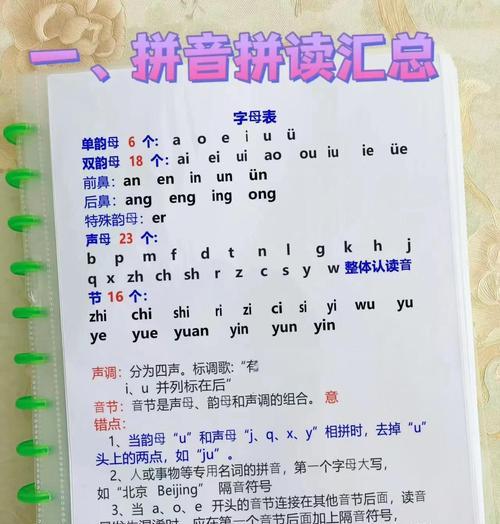 一、拼音拼读汇总
字母表
单韵母 6 个: a o e i u ü
双韵母 18 个: ai ei ui ao ou iu ie üe
前鼻: an en in un ün
后鼻: ang eng ing ong
特殊韵母: er
声母 23 个:
b p m f d t n l g k h j
q x zh ch sh r z c s y w 整体认读音
节 16 个:
zhi chi shi ri zi ci si yi wu yu
ye yue yuan yin yun yin
声调: 分为四声。标调歌:"有
i、u 并列标在后"
音节: 音节是声母、韵母和声调的组合。 意
错点:
1、当韵母"u"和声母"j、q、x、y"相拼时,去掉"u"
头上的两点,如"ju"。
2、人或事物等专名词的拼音,第一个字母大写,
如"北京 Beijing" 隔音符号
3、当 a、o、e 开头的音节连接在其他音节后面,读音
易发生混淆时,应在第一个音节后面加上隔音符号,